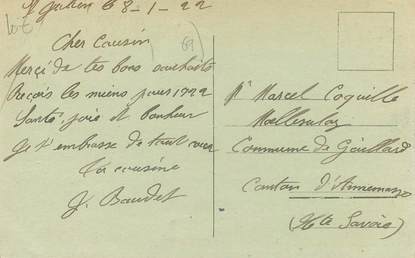 St Julien le 8-1-22
69
Cher Cousin
Merçi de tes bons souhaits
Reçois les miens pour 1922
Santé, joie et bonheur
Je t'embrasse de tout cœur
Ta cousine
J. Baudet
Mr Marcel Coquille
Commune de Gaillard
Canton d'Annemasse
(Hte Savoie)